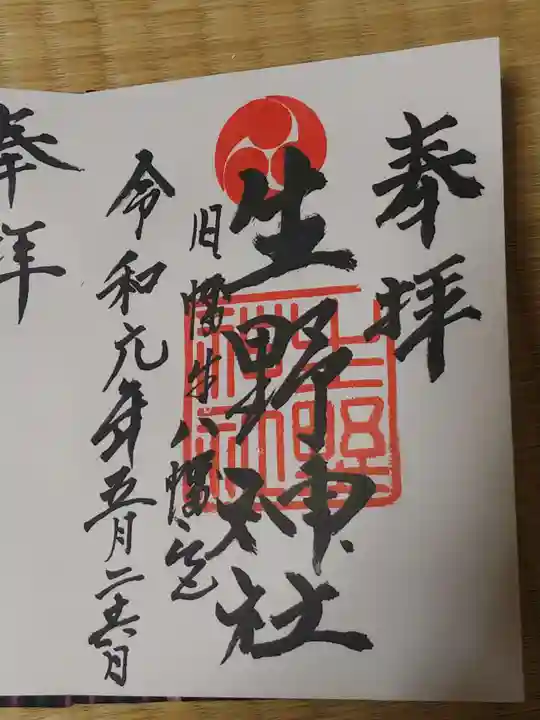 奉拝
生野神社
旧幡生八幡宮
令和元年五月二十六日
奉拝